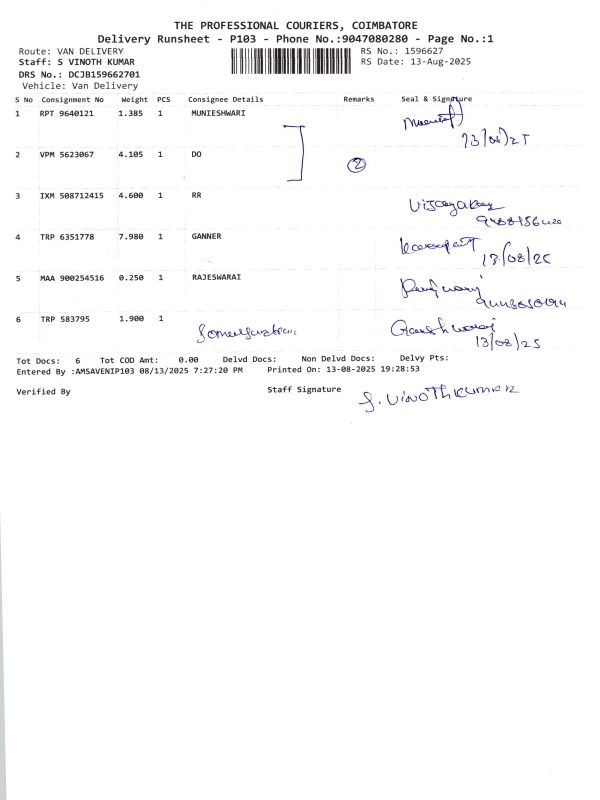 THE PROFESSIONAL COURIERS, COIMBATORE
Delivery Runsheet - P103 - Phone No.:9047080280 - Page No.:1
Route: VAN DELIVERY RS No.: 1596627
Staff: S VINOTH KUMAR RS Date: 13-Aug-2025
DRS No.: DCJB159662701
Vehicle: Van Delivery
S No Consignment No Weight PCS Consignee Details Remarks Seal & Signature
1 RPT 9640121 1.385 1 MUNIESHWARI
13/08/25
2 VPM 5623067 4.105 1 DO 2
3 IXM 508712415 4.600 1 RR
4 TRP 6351778 7.980 1 GANNER
13/08/25
5 MAA 900254516 0.250 1 RAJESWARAI
6 TRP 583795 1.900 1
13/08/25
Tot Docs: 6 Tot COD Amt: 0.00 Delvd Docs: Non Delvd Docs: Delvy Pts:
Entered By :AMSAVENIP103 08/13/2025 7:27:20 PM Printed On: 13-08-2025 19:28:53
Verified By Staff Signature S. VINOTHKUMAR